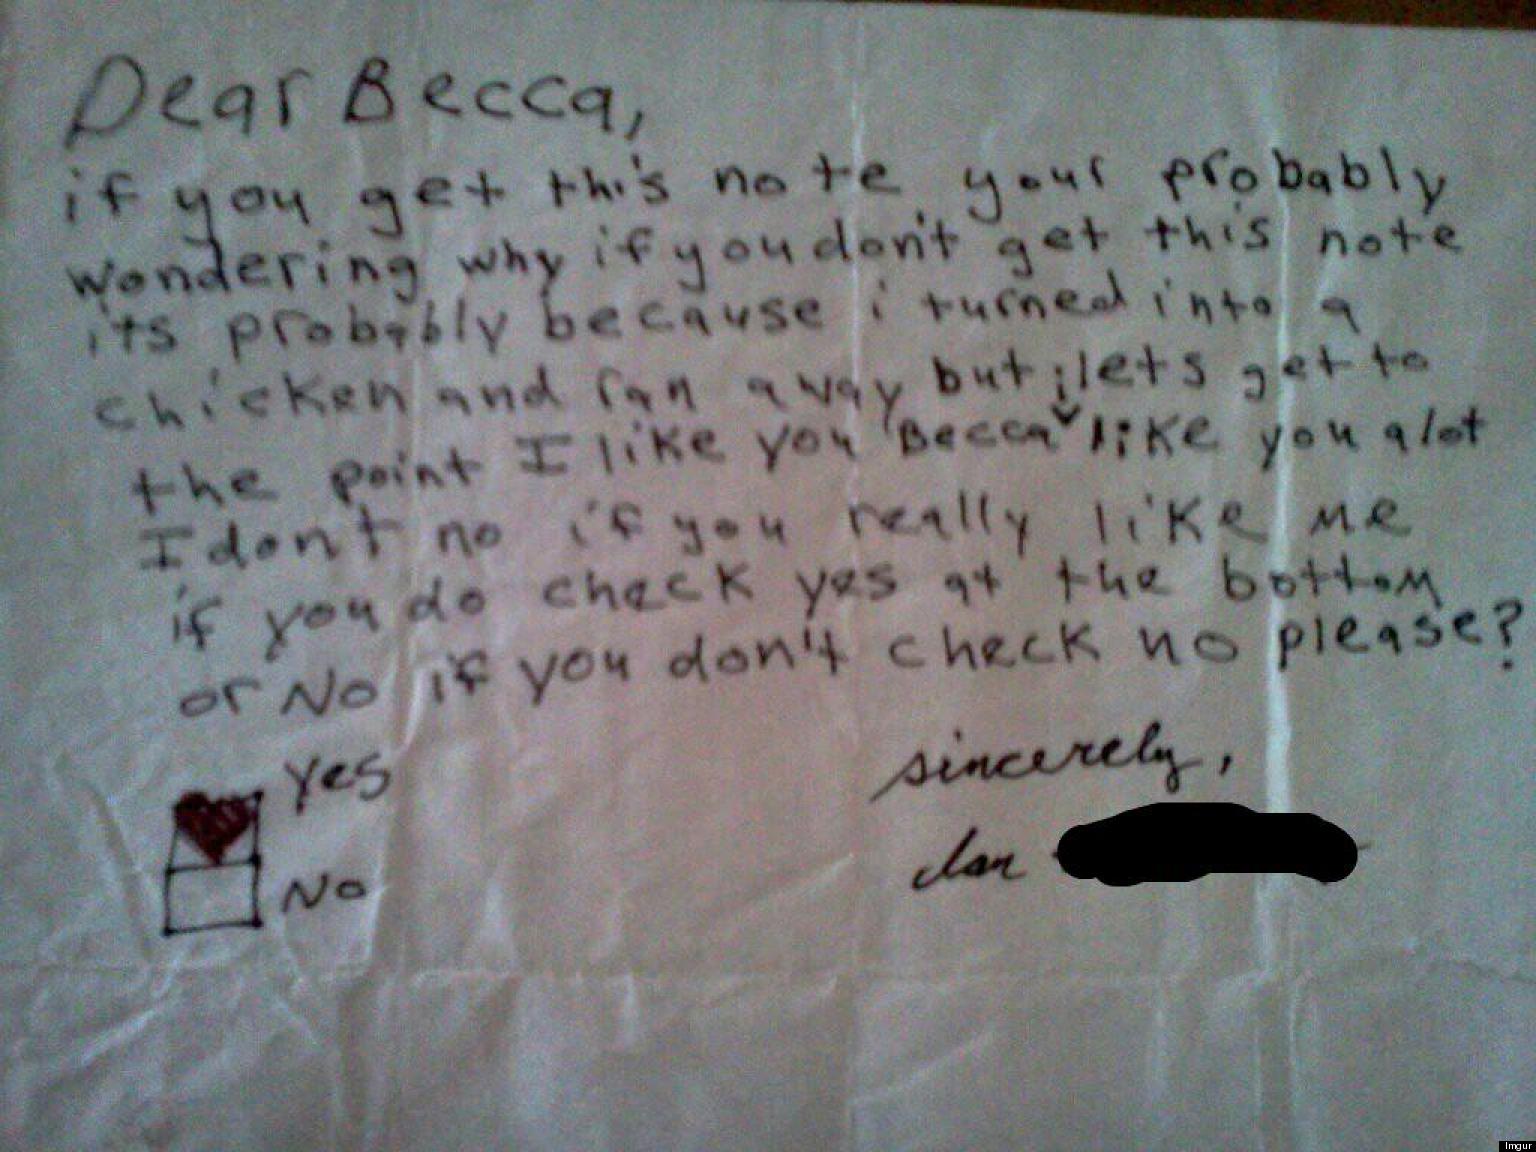 Dear Becca,
if you get this note your probably
wondering why if you don't get this note
its probably because i turned into a
chicken and ran away but lets get to
the point I like you Becca i like you alot
I dont no if you really like me
if you do check yes at the bottom
or No if you don't check no please?
yes
No
sincerely,
Ian
Imgur